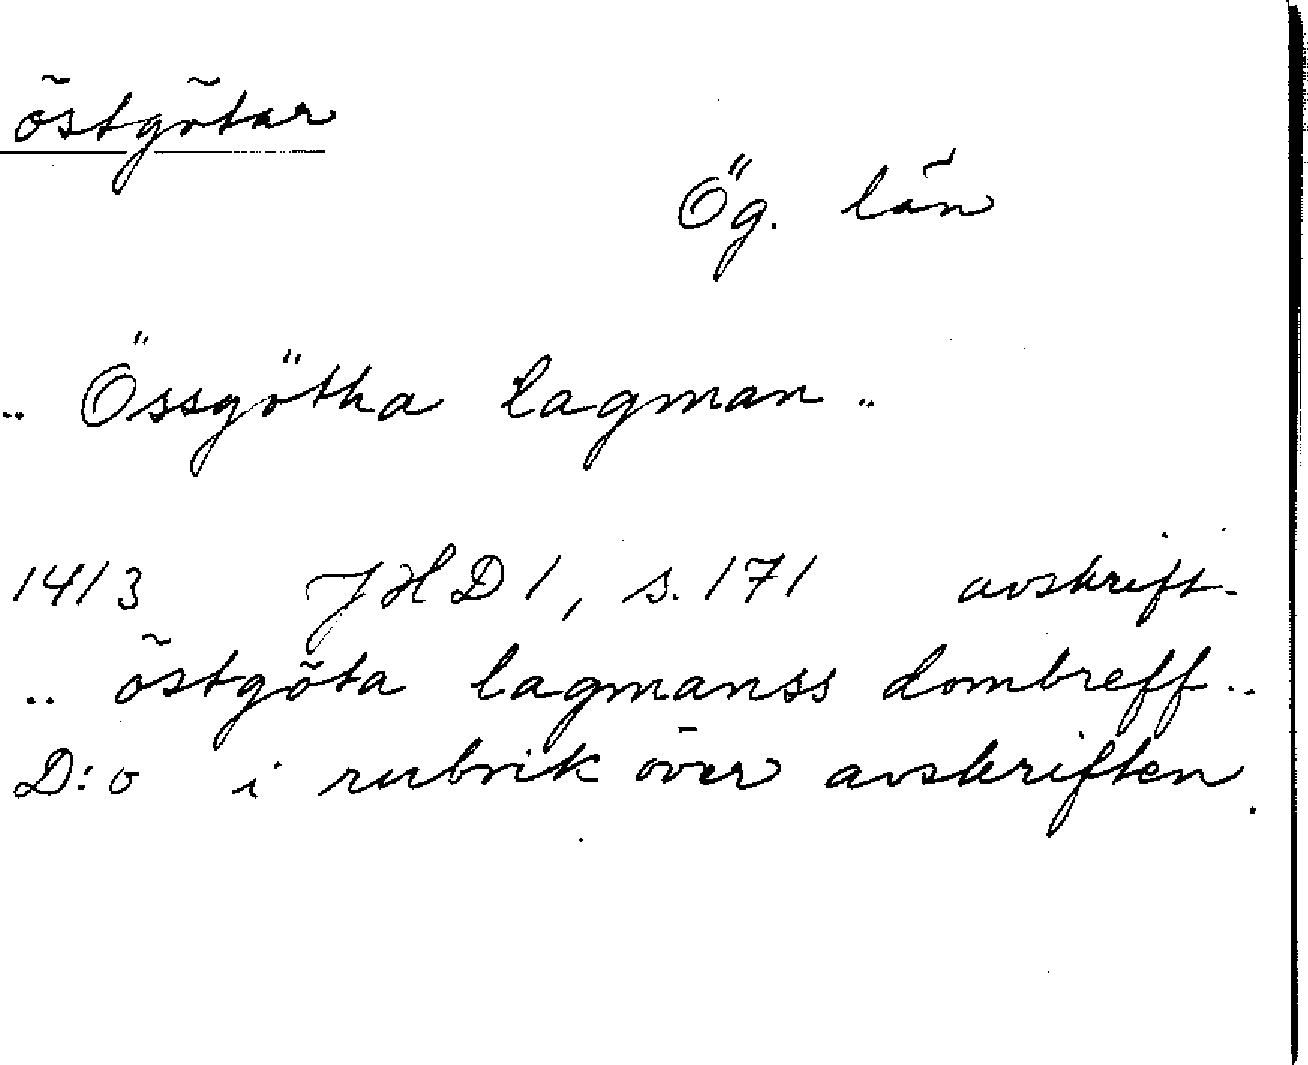 östgötar
Ög. län
.. Össgötha lagman ..
1413 JHD 1, s. 171 avskrift.
.. östgöta lagmanss dombreff ..
D:o i rubrik över avskriften.